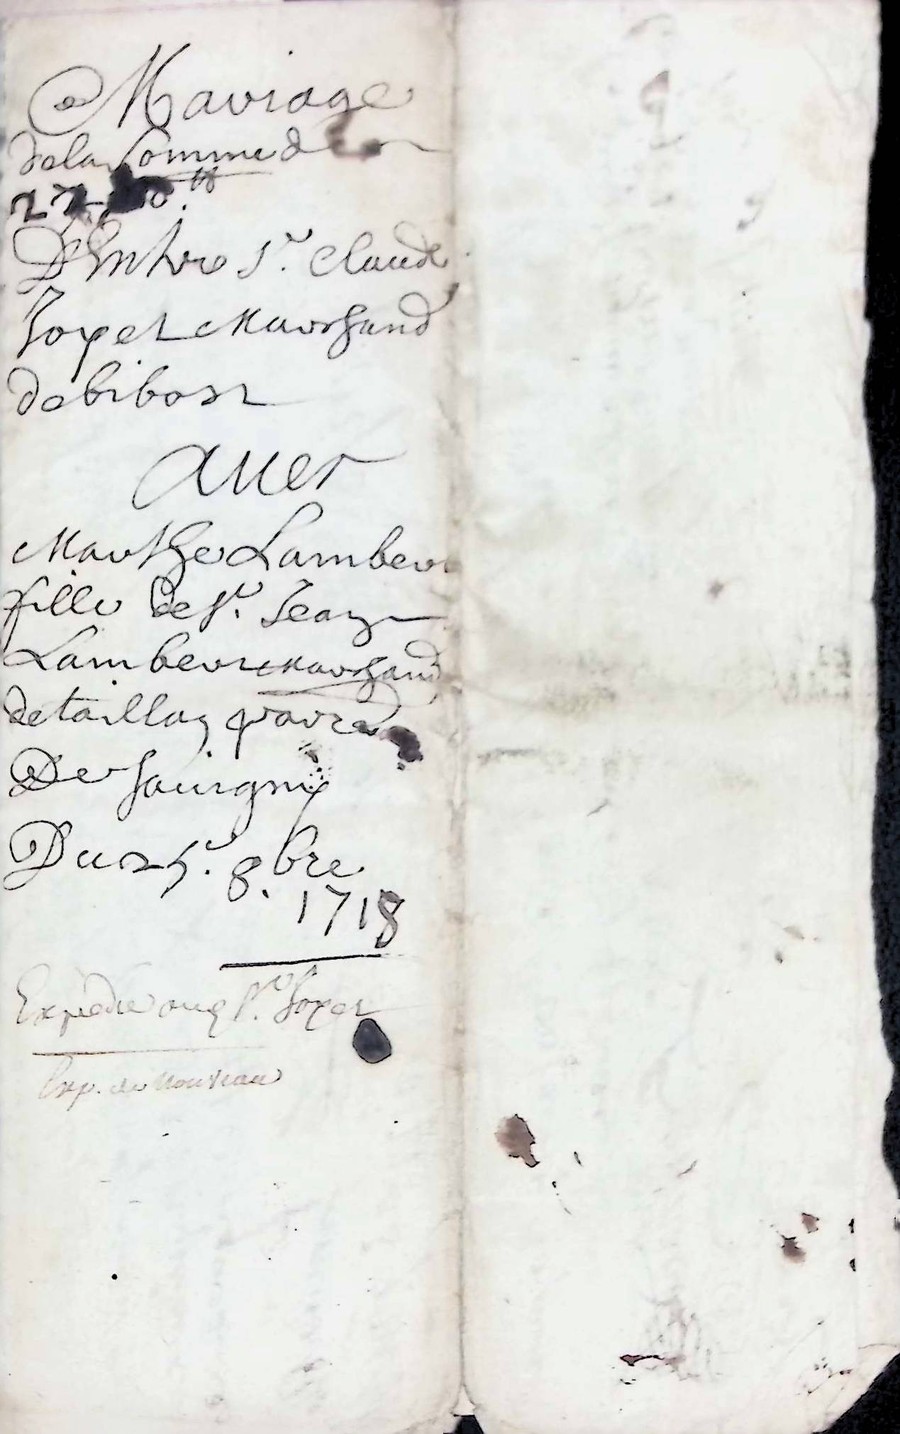 Mariage
de la Somme de
D'Entre Sr. Claude
Joyet Marchand
de bibost
Avec
Marthe Lambert
fille de Sr. Jean
Lambert Marchand
de taillas parr
De Souigny
Du 25e. 8bre
1718
Expedié aud Sr. Joyet
Exp. de nouveau